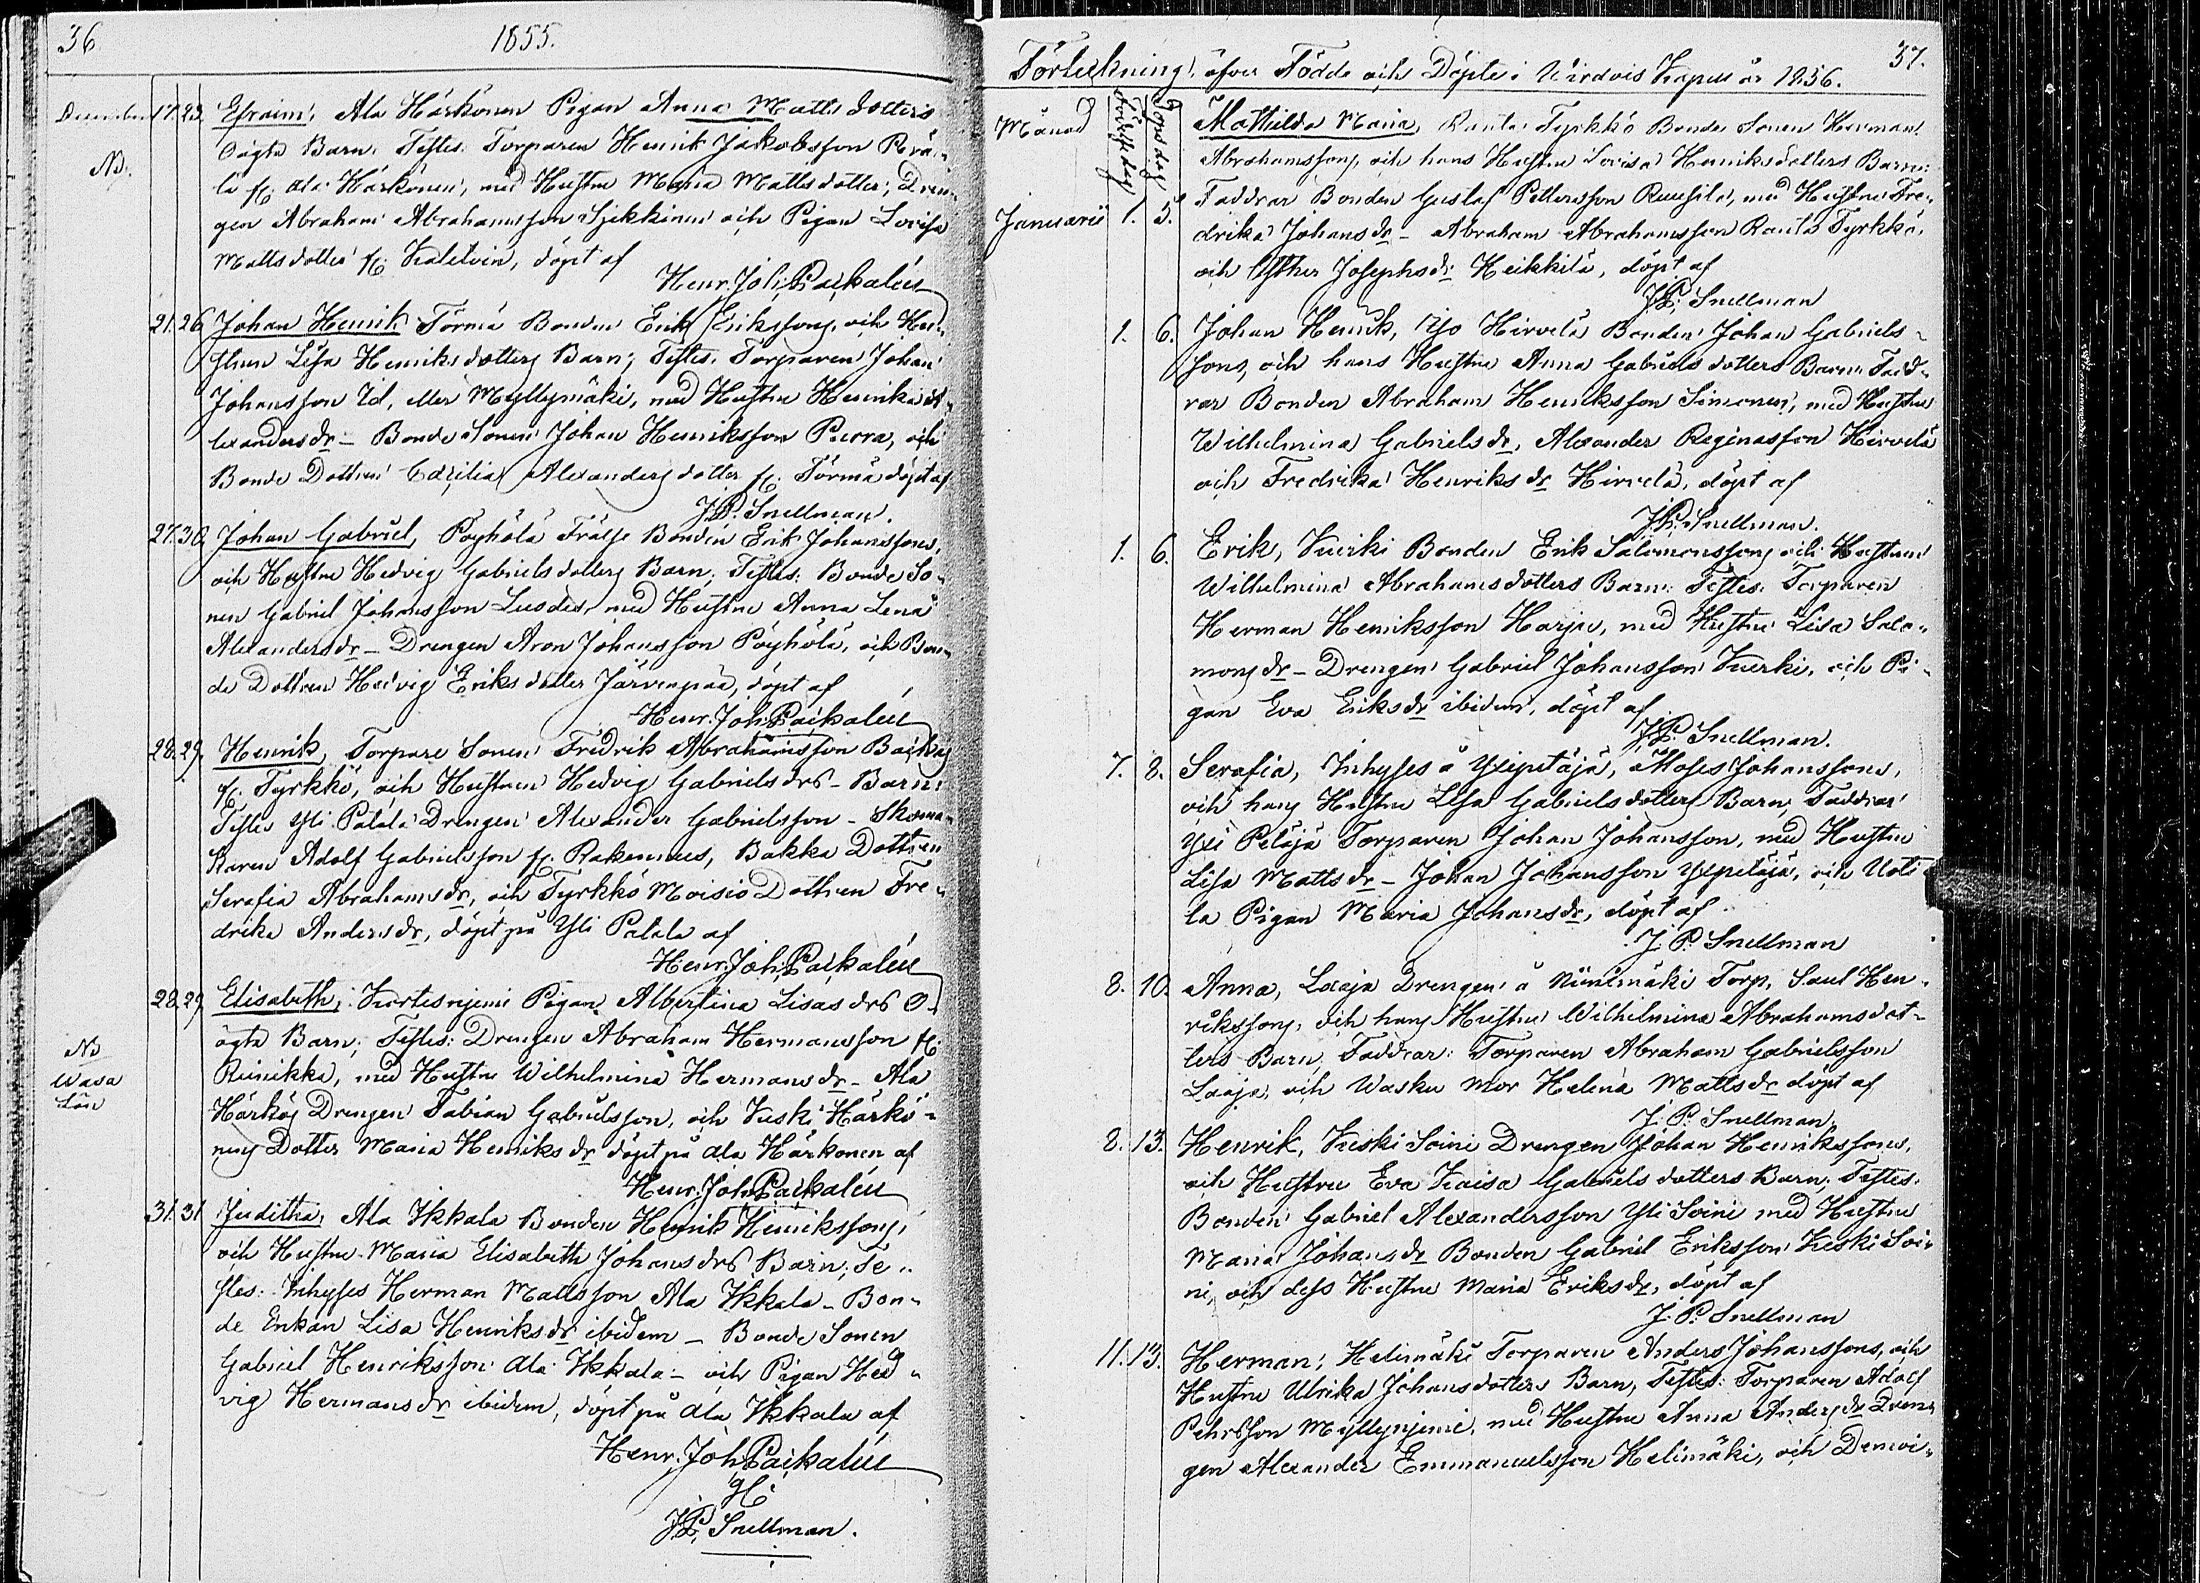 36.
1855.
December 17. 23. Efraim, Ala Härkönen Pigan Anna Matts dotters
Oägta Barn. Testes: Torparen Henrik Jakobsson Perä-
No. lä fr. Ala Härkönen, med Hustru Maria Mattsdotter, Dren-
gen Abraham Abrahamsson Sjekkinen och Pigan Lovisa
Mattsdotter fr. Kaletvin, döpt af
Henr. Joh. Paikalén
21. 26. Johan Henrik Törmä Bonden Erik Erikssons, och Hu-
struns Lisa Henriksdotters Barn; Testes: Torparen Johan
Johansson Id, eller Myllymäki, med Hustru Henrika A-
lexandersdr – Bonde Sonen Johan Henriksson Purra, och
Bonde Dottren Cæcilia Alexandersdotter fr. Törmä döpt af
J. P. Snellman.
27. 30. Johan Gabriel, Pöyhölä Frälse Bonden Erik Johanssons,
och Hustru Hedvig Gabrielsdotters Barn; Testes: Bonde So-
nen Gabriel Johansson med Hustru Anna Lena
Alexandersdr – Drengen Aron Johansson Pöyhölä, och Bon-
de Dottren Hedvig Eriksdotter Järvenpää, döpt af
Henr. Joh. Paikalén
28. 29. Henrik, Torpare Sonen Fredrik Abrahamsson
fr. Tyrkkö, och Hustrun Hedvig Gabrielsdrs – Barn;
Testes Yli Palala Drengen Alexander Gabrielsson – Skoma-
karen Adolf Gabrielsson fr. Rakennus, Bakka Dottren
Serafia Abrahamsdr, och Tyrkkö Moisio Dottren Fre-
drika Andersdr, döpt på Yli Palala af
Henr. Joh. Paikalén
28. 29. Elisabeth, Kortesnjemi Pigan Albertina Lisasdrs O-
ägta Barn; Testes: Drengen Abraham Hermansson fr.
No Riinikka, med Hustru Wilhelmina Hermansdr – Ala
Wasa Län Härkös Drengen Fabian Gabrielsson, och Keski Härkö-
nens Dotter Maria Henriksdr döpt på Ala Härkönen af
Henr. Joh. Paikalén
31. 31. Juditha, Ala Ikkala Bonden Henrik Henrikssons,
och Hustru Maria Elisabeth Johansdrs Barn; Te-
stes: Inhyses Herman Mattsson Ala Ikkala – Bon-
de Enkan Lisa Henriksdr ibidem – Bonde Sonen
Gabriel Henriksson Ala Ikkala – och Pigan Hed-
vig Hermansdr ibidem, döpt på Ala Ikkala af
Henr. Joh. Paikalén
J. P. Snellman.
37.
Förteckning, öfver Födde och Döpte i Wirdois Kapell år 1856.
Månad Födelse dag Dops dag Mathilda Maria, Ranta Tyrkkö Bonde Sonen Herman
Abrahamssons, och hans Hustru Lovisa Henriksdotters Barn:
Januarii 1. 5. Faddrar Bonden Gustaf Pettersson Ruusila, med Hustru Fre-
drika Johansdr – Abraham Abrahamsson Ranta Tyrkkö,
och Esther Josephsdr Heikkilä, döpt af
J. P. Snellman
1. 6. Johan Henrik, Yo Hirvelä Bonden Johan Gabriels-
sons, och hans Hustru Anna Gabrielsdotters Barn. Fadd-
rar Bonden Abraham Henriksson Simonen, med Hustru
Wilhelmina Gabrielsdr, Alexander Reginasson Hirvelä
och Fredrika Henriksdr Hirvelä, döpt af
J. P. Snellman.
1. 6. Erik, Kurki Bonden Erik Salomonssons och Hustrun
Wilhelmina Abrahamsdotters Barn: Testes: Torparen
Herman Henriksson Harju, med Hustru Lisa Salo-
monsdr – Drengen Gabriel Johansson Kurki, och Pi-
gan Eva Eriksdr ibidem, döpt af
J. P. Snellman.
7. 8. Serafia, Inhyses å Yxipetäjä, Moses Johanssons,
och hans Hustru Lisa Gabrielsdotters Barn; Faddrar
Yxi Petäjä Torparen Johan Johansson, med Hustru
Lisa Mattsdr – Johan Johansson Yxpetäjä, och Uoti-
la Pigan Maria Johansdr, döpt af
J. P. Snellman
8. 10. Anna, Laaja Drengen å Niinimäki Torp, Saul Hen-
rikssons, och hans Hustru Wilhelmina Abrahamsdot-
ters Barn. Faddrar: Torparen Abraham Gabrielsson
Laaja, och Wasku Mor Helena Mattsdr döpt af
J. P. Snellman.
8. 13. Henrik, Keski Soini Drengen Johan Henrikssons,
och Hustru Eva Kaisa Gabrielsdotters Barn; Testes:
Bonden Gabriel Alexandersson Yli Soini med Hustru
Maria Johansdr Bonden Gabriel Eriksson Keski Soi-
ni, och dess Hustru Maria Eriksdr, döpt af
J. P. Snellman
11. 13. Herman, Helimäki Torparen Anders Johanssons, och
Hustru Ulrika Johansdotters Barn, Testes: Torparen Adolf
Pehrsson Myllyniemi, med Hustru Anna Andersdr Dren-
gen Alexander Emmanuelsson Helimäki, och Demoi-